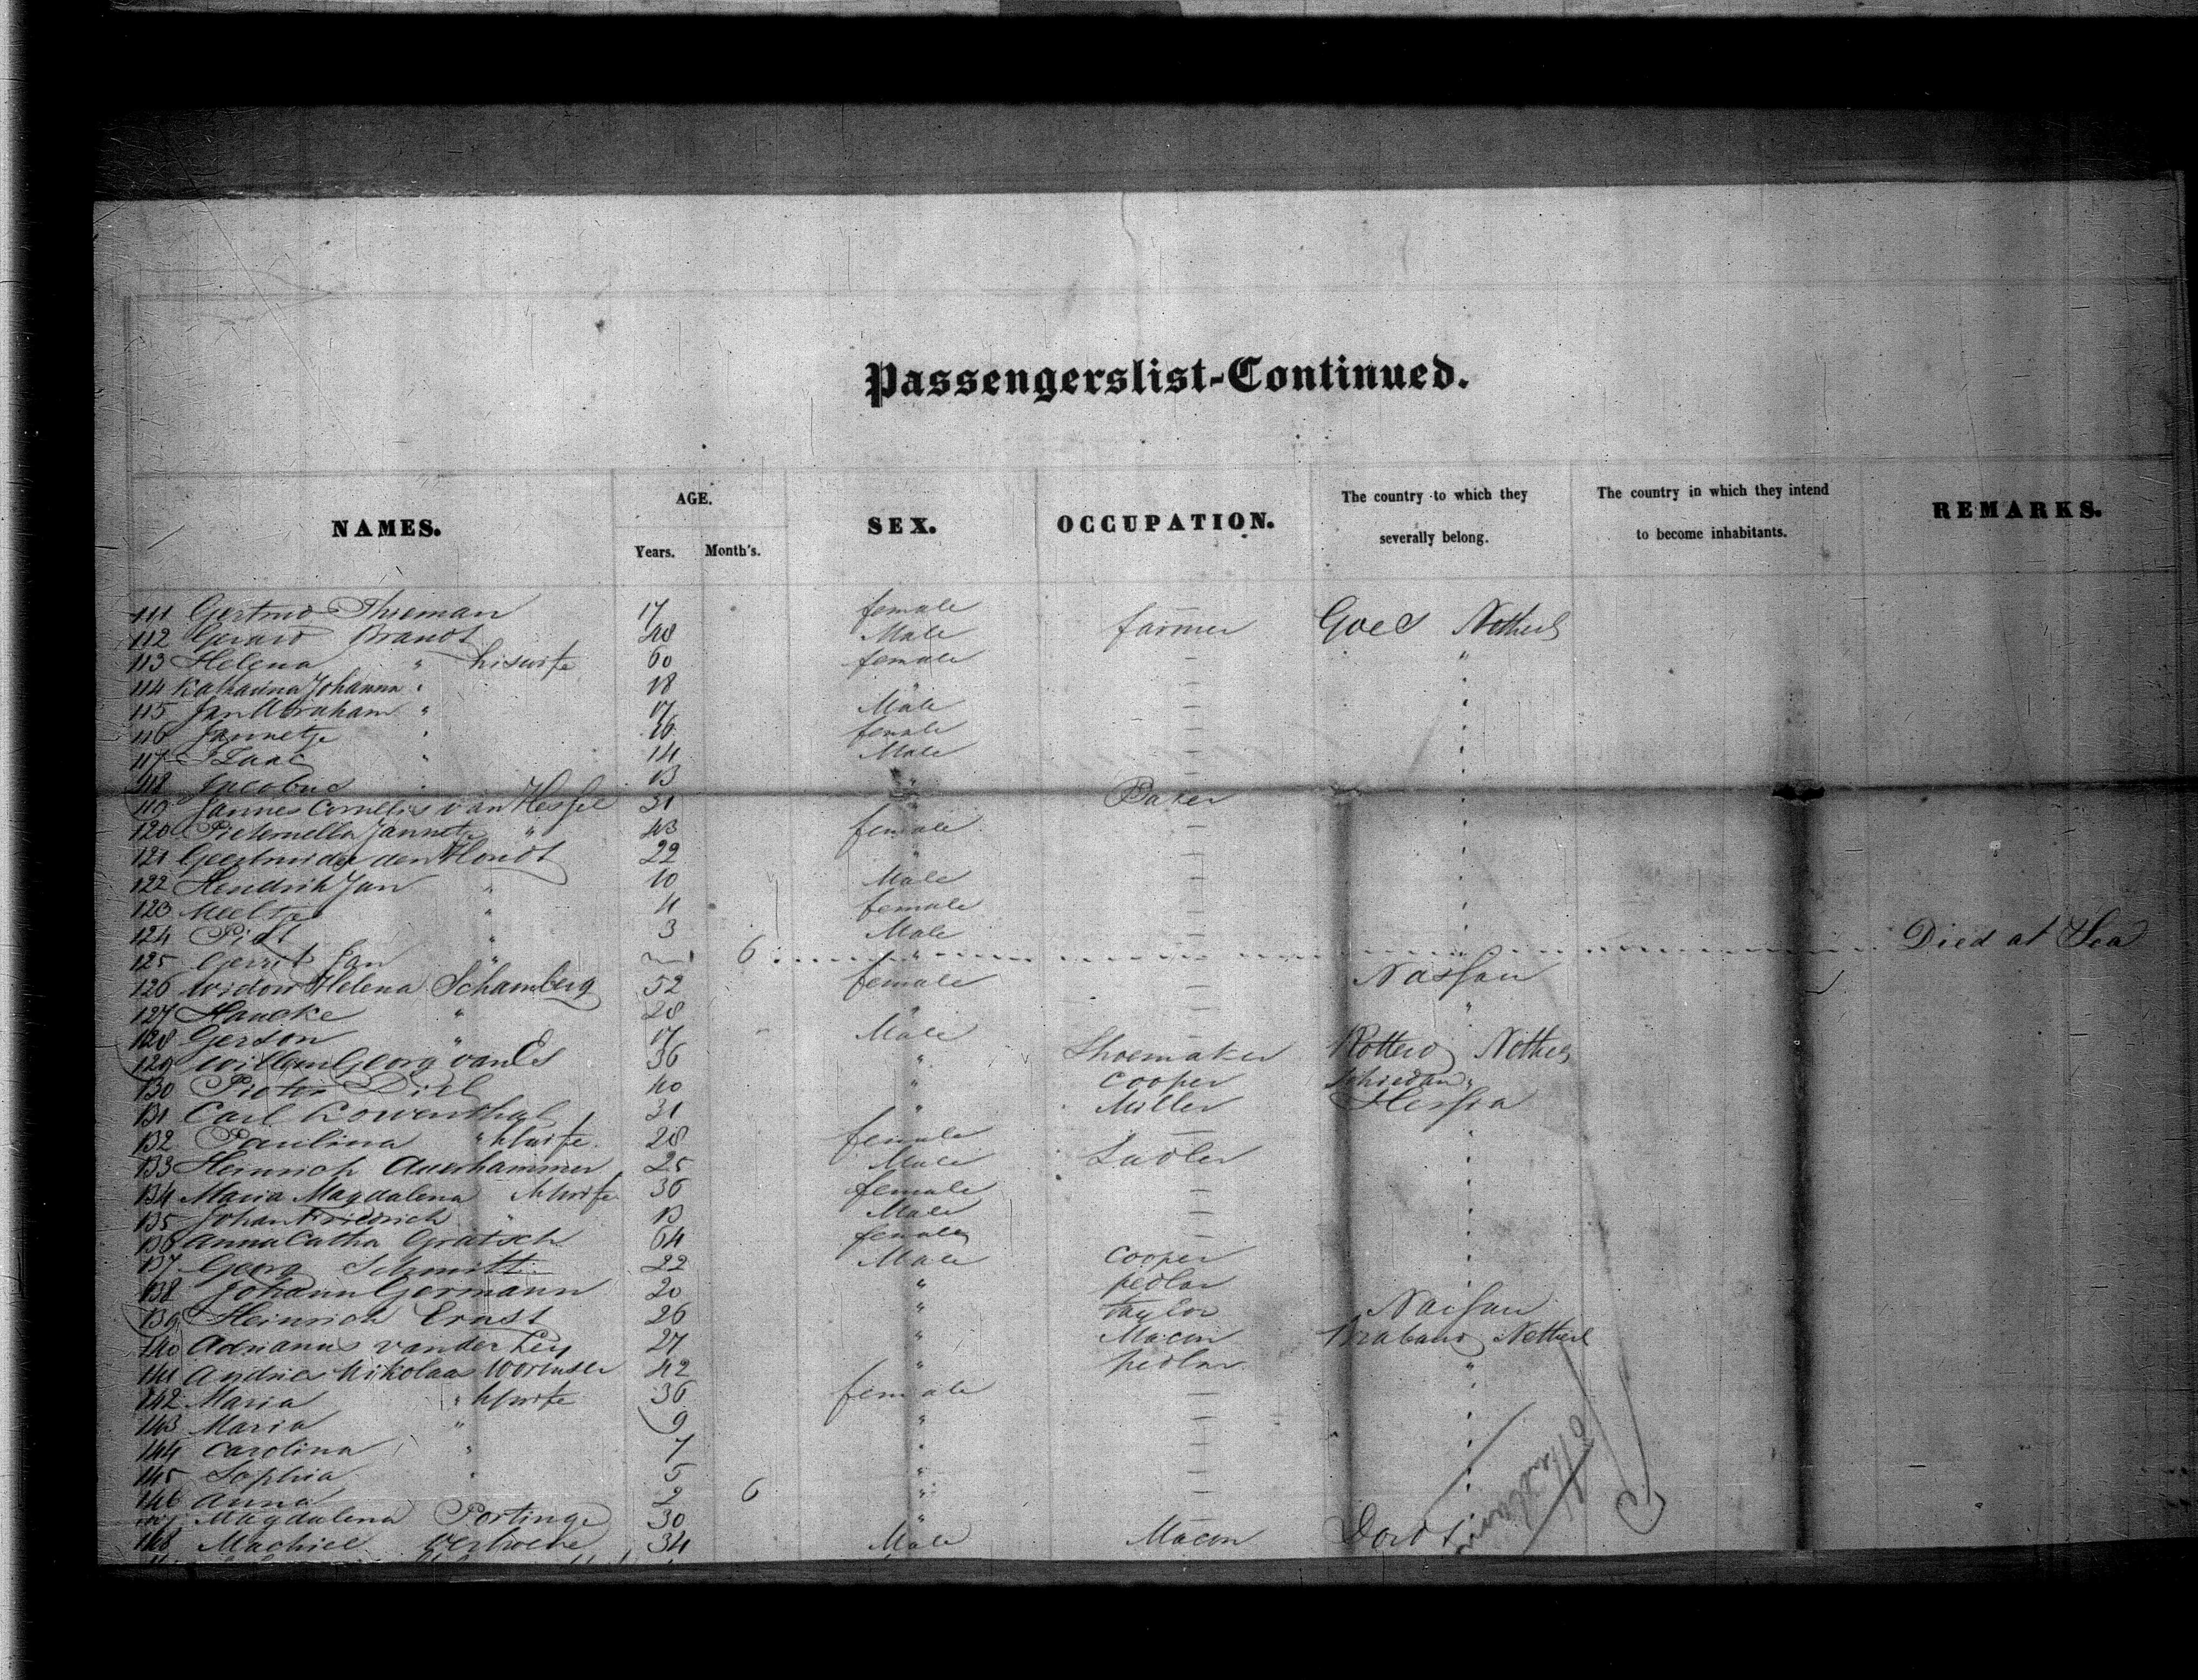 Passengerslist-Continued.
NAMES. AGE. Years. Month's. SEX. OCCUPATION. The country to which they severally belong. The country in which they intend to become inhabitants. REMARKS.
111 Gertrud Thieman 17 female
112 Gerard Brandt 48 Male farmer Goes Netherl
113 Helena " hiswife 60 female — "
114 Katharina Johanna " 18 " — "
115 Jan Abraham " 17 Male — "
116 Jannetje " 16 female — "
117 Izaac " 14 Male — "
118 Jacobus " 13 " — "
119 Jannes Cornelis van Hessel 31 Baker "
120 Pieternella Jannetje " 43 female — "
121 den Hondt 22 " — "
122 Hendrik Jan " 10 Male — "
123 Meeltje " 4 female — "
124 Piet " 3 Male — "
125 Gerrit Jan " 6 " Died at Sea
126 widow Helena Schamberg 52 female — Nassau
127 Haucke " 28 " — "
128 Gerson " 17 Male —
129 Willem Georg van Es 36 " Shoemaker Rotterd Nether
130 Pieter Diel 40 " Cooper Schiedam "
131 Carl Lowenthal 31 " Miller Hessia
132 Paulina " hswife 28 female — "
133 Heinrich Auerhammer 25 Male Sadler "
134 Maria Magdalena hswife 36 female — "
135 Johan Friedrich " 13 Male — "
136 Anna Catha Gratsch 64 female — "
137 Georg Schmitt 22 Male Cooper "
138 Johann Germann 20 " pedlar "
139 Heinrich Ernst 26 " taylor Nassau
140 Adrianus van der Ley 27 " Macon Braband Netherl
141 Andries Nikolaas 42 " pedlar "
142 Maria " hswife 36 female — "
143 Maria " 9 " — "
144 Carolina " 7 " — "
145 Sophia " 5 " — "
146 Anna 2 6 " — "
147 Magdalena Portinge 30 " —
148 Machiel Verhoeve 34 Male Macon Dordt